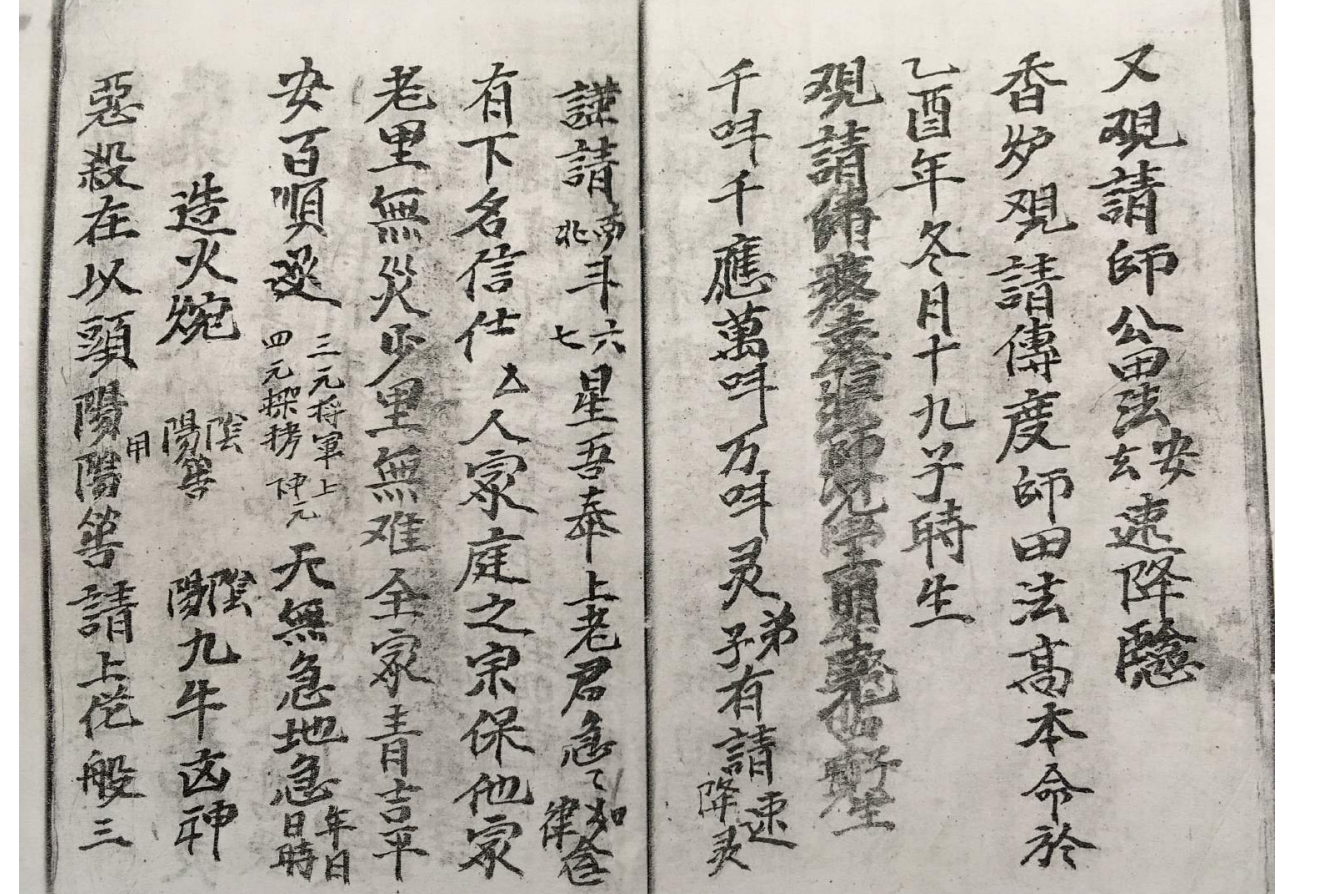 又覌請師公田法安玄速降臨
香炉覌請傳度師田法高本命於
乙酉年冬月十九子時生
覌請師
千呌千應萬呌万呌灵弟子有請速降灵
謹請南北斗六七星吾奉上老君急〻如律令
有下名信仕厶人家庭之宗保他家
老里無災少里無难全家青吉平
安百順遂三元将軍上四元下元天無急地急年日日時
造火碗陰陽筶陰陽九牛凶神
惡殺在以頭陽用陽筶請上花般三